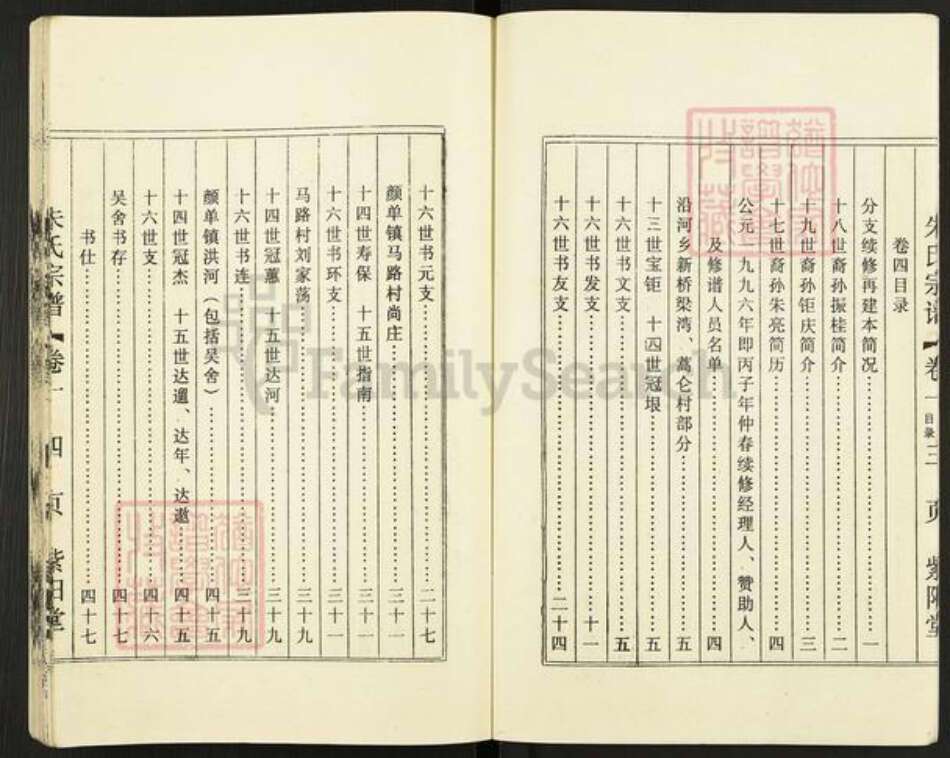 朱氏宗谱【卷一 目录 三 页 紫阳堂
卷四目录
分支续修再建本简况……一
十八世裔孙振桂简介……二
十九世裔孙钜庆简介……三
十七世裔孙朱亮简历……四
公元一九九六年即丙子年仲春续修经理人、赞助人、
及修谱人员名单……四
沿河乡新桥梁湾、蒿仑村部分……五
十三世宝钜 十四世冠垠……五
十六世书文支……五
十六世书发支……十一
十六世书友支……二十四
十六世书元支……二十七
颜单镇马路村尚庄……三十一
十四世寿保 十五世指南……三十一
十六世书环支……三十一
马路村刘家荡……三十九
十四世冠蕙 十五世达河……三十九
十六世书连……三十九
颜单镇洪河(包括吴舍)……四十五
十四世冠杰 十五世达暹、达年、达遨……四十五
十六世支……四十六
吴舍书存……四十七
书仕……四十七
朱氏宗谱【卷一 四 页 紫阳堂
FamilySearch